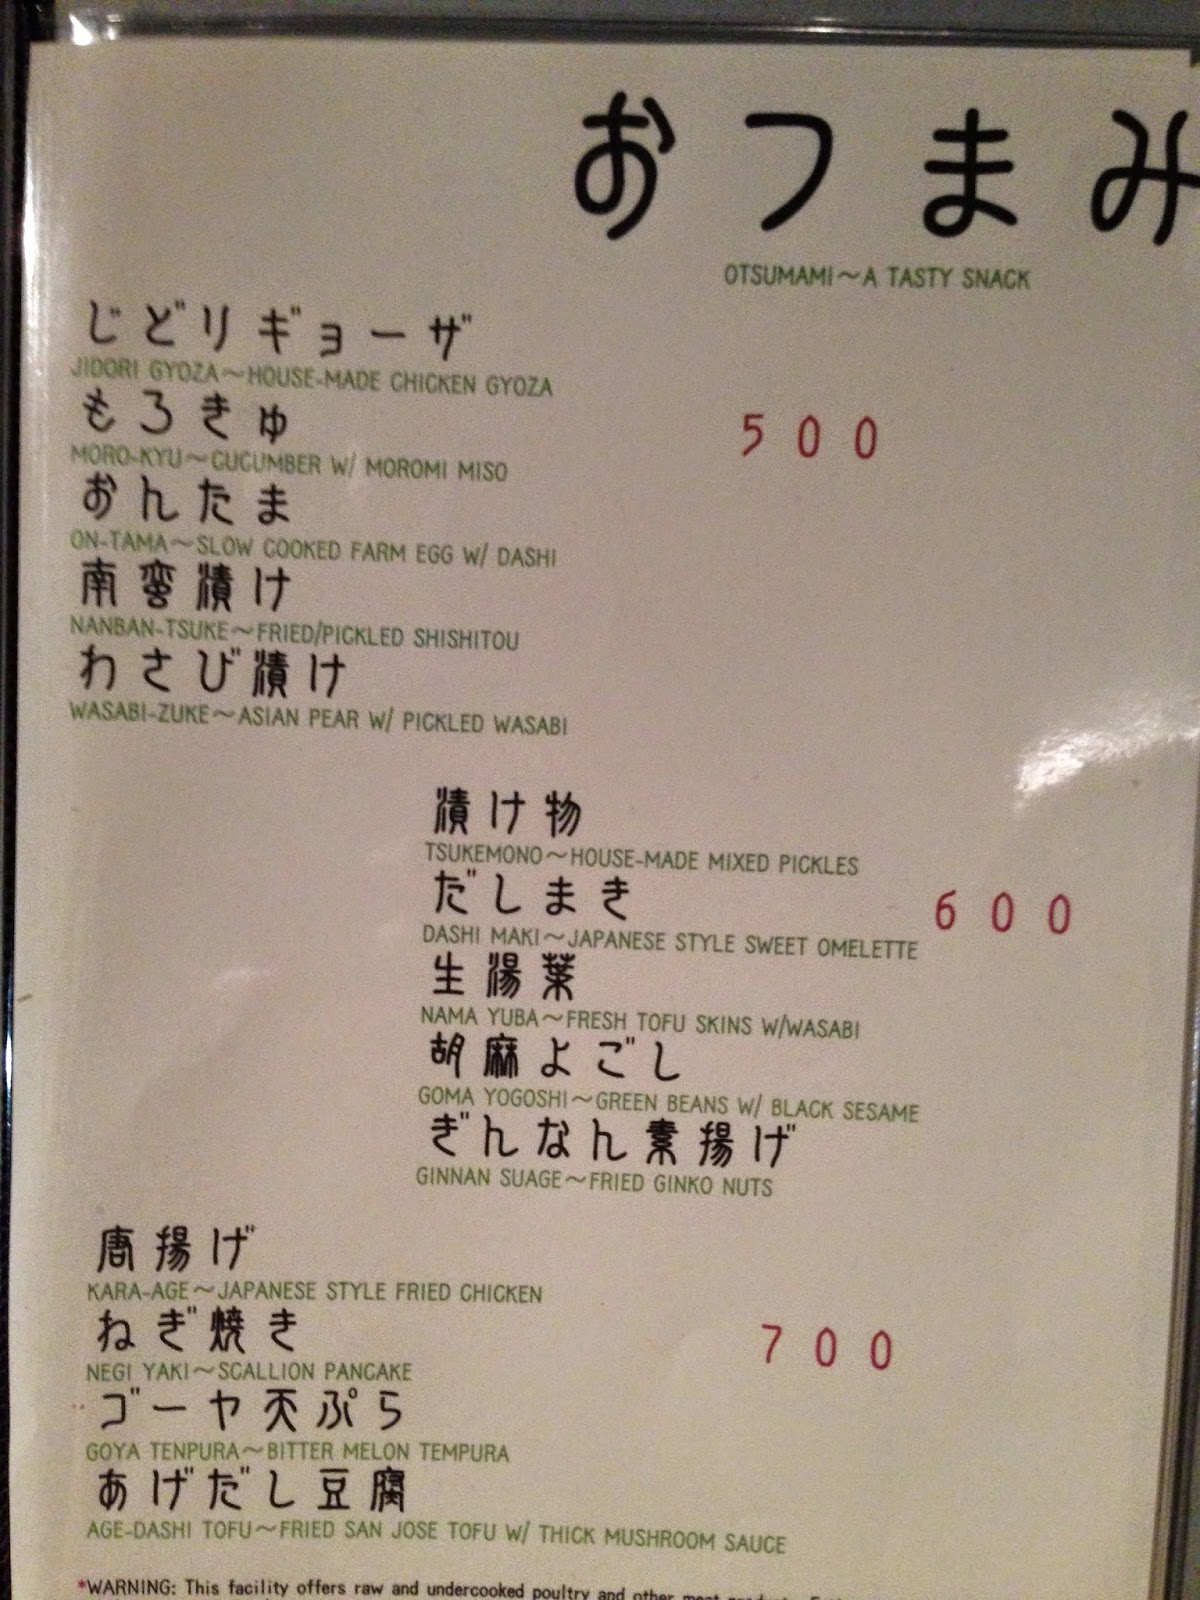 おつまみ
OTSUMAMI～A TASTY SNACK
じどりギョーザ
JIDORI GYOZA～HOUSE-MADE CHICKEN GYOZA
もろきゅ
MORO-KYU～CUCUMBER W/ MOROMI MISO
500
おんたま
ON-TAMA～SLOW COOKED FARM EGG W/ DASHI
南蛮漬け
NANBAN-TSUKE～FRIED/PICKLED SHISHITOU
わさび漬け
WASABI-ZUKE～ASIAN PEAR W/ PICKLED WASABI
漬け物
TSUKEMONO～HOUSE-MADE MIXED PICKLES
だしまき
600
DASHI MAKI～JAPANESE STYLE SWEET OMELETTE
生湯葉
NAMA YUBA～FRESH TOFU SKINS W/WASABI
胡麻よごし
GOMA YOGOSHI～GREEN BEANS W/ BLACK SESAME
ぎんなん素揚げ
GINNAN SUAGE～FRIED GINKO NUTS
唐揚げ
KARA-AGE～JAPANESE STYLE FRIED CHICKEN
ねぎ焼き
700
NEGI YAKI～SCALLION PANCAKE
ゴーヤ天ぷら
GOYA TENPURA～BITTER MELON TEMPURA
あげだし豆腐
AGE-DASHI TOFU～FRIED SAN JOSE TOFU W/ THICK MUSHROOM SAUCE
*WARNING: This facility offers raw and undercooked poultry and other meat